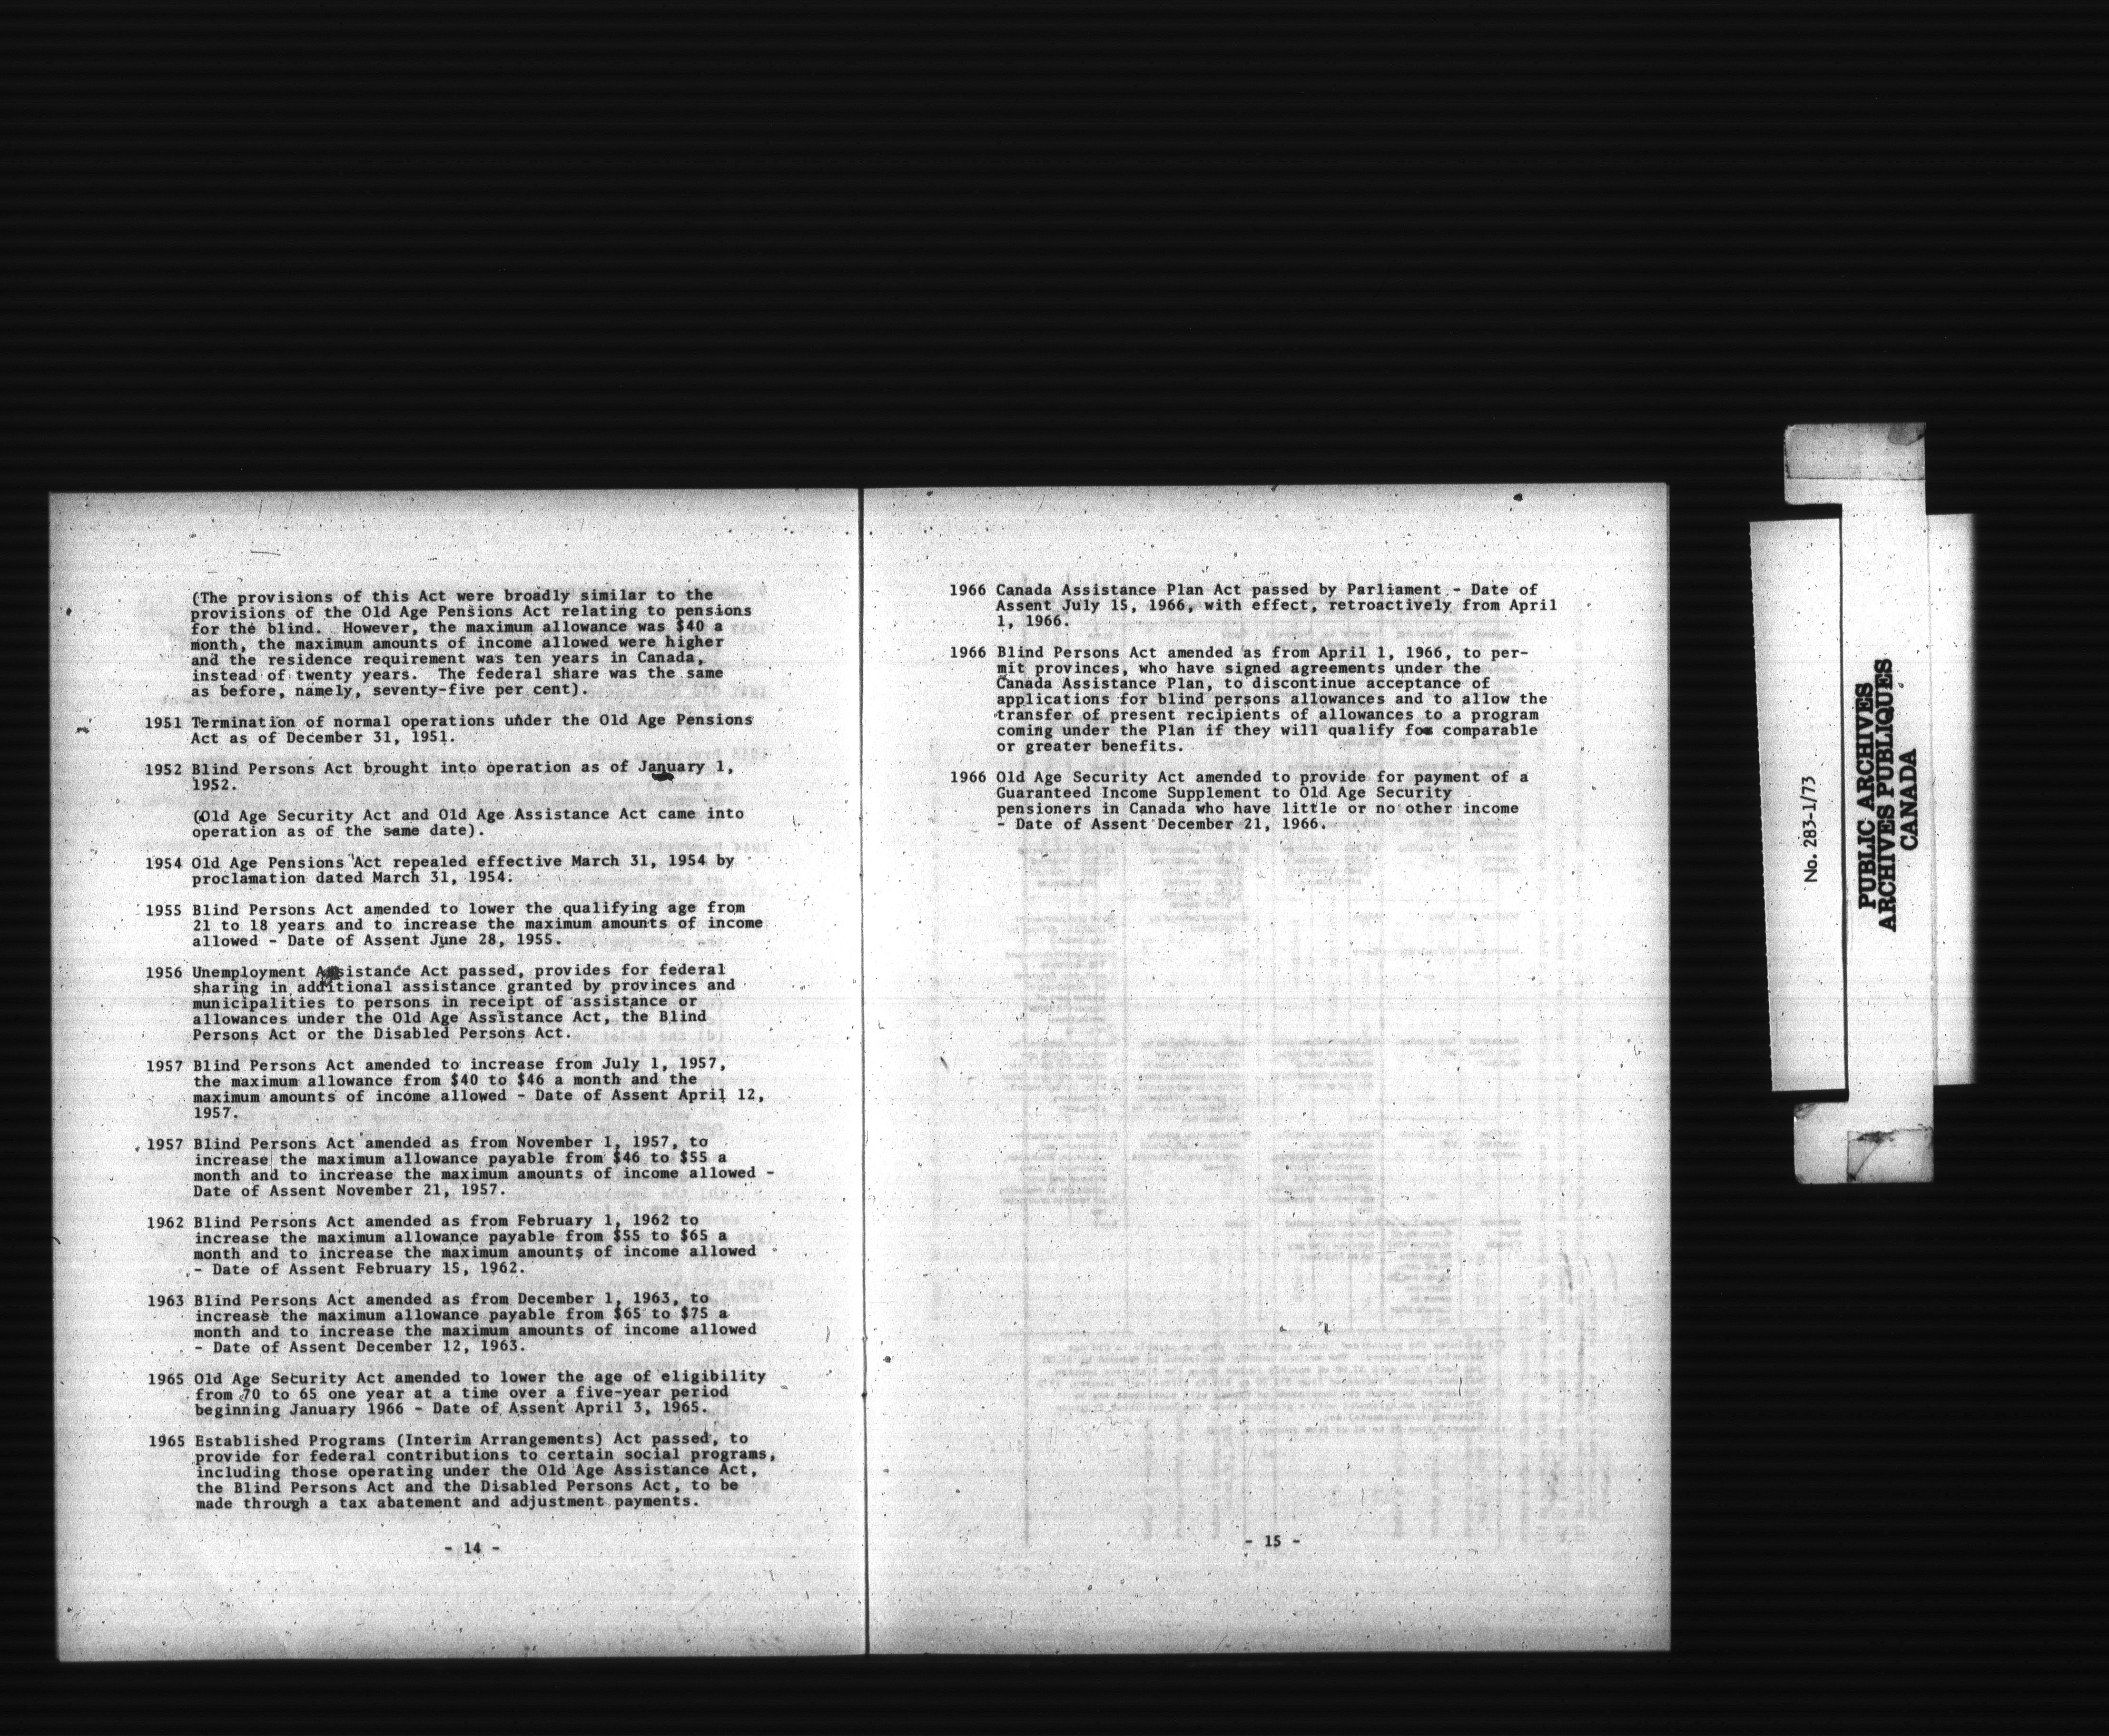 (The provisions of this Act were broadly similar to the
provisions of the Old Age Pensions Act relating to pensions
for the blind. However, the maximum allowance was $40 a
month, the maximum amounts of income allowed were higher
and the residence requirement was ten years in Canada,
instead of twenty years. The federal share was the same
as before, namely, seventy-five per cent).
1951 Termination of normal operations under the Old Age Pensions
Act as of December 31, 1951.
1952 Blind Persons Act brought into operation as of January 1,
1952.
(Old Age Security Act and Old Age Assistance Act came into
operation as of the same date).
1954 Old Age Pensions Act repealed effective March 31, 1954 by
proclamation dated March 31, 1954.
1955 Blind Persons Act amended to lower the qualifying age from
21 to 18 years and to increase the maximum amounts of income
allowed - Date of Assent June 28, 1955.
1956 Unemployment Assistance Act passed, provides for federal
sharing in additional assistance granted by provinces and
municipalities to persons in receipt of assistance or
allowances under the Old Age Assistance Act, the Blind
Persons Act or the Disabled Persons Act.
1957 Blind Persons Act amended to increase from July 1, 1957,
the maximum allowance from $40 to $46 a month and the
maximum amounts of income allowed - Date of Assent April 12,
1957.
1957 Blind Persons Act amended as from November 1, 1957, to
increase the maximum allowance payable from $46 to $55 a
month and to increase the maximum amounts of income allowed -
Date of Assent November 21, 1957.
1962 Blind Persons Act amended as from February 1, 1962 to
increase the maximum allowance payable from $55 to $65 a
month and to increase the maximum amounts of income allowed
- Date of Assent February 15, 1962.
1963 Blind Persons Act amended as from December 1, 1963, to
increase the maximum allowance payable from $65 to $75 a
month and to increase the maximum amounts of income allowed
- Date of Assent December 12, 1963.
1965 Old Age Security Act amended to lower the age of eligibility
from 70 to 65 one year at a time over a five-year period
beginning January 1966 - Date of Assent April 3, 1965.
1965 Established Programs (Interim Arrangements) Act passed, to
provide for federal contributions to certain social programs,
including those operating under the Old Age Assistance Act,
the Blind Persons Act and the Disabled Persons Act, to be
made through a tax abatement and adjustment payments.
- 14 -
1966 Canada Assistance Plan Act passed by Parliament - Date of
Assent July 15, 1966, with effect, retroactively from April
1, 1966.
1966 Blind Persons Act amended as from April 1, 1966, to per-
mit provinces, who have signed agreements under the
Canada Assistance Plan, to discontinue acceptance of
applications for blind persons allowances and to allow the
transfer of present recipients of allowances to a program
coming under the Plan if they will qualify for comparable
or greater benefits.
1966 Old Age Security Act amended to provide for payment of a
Guaranteed Income Supplement to Old Age Security
pensioners in Canada who have little or no other income
- Date of Assent December 21, 1966.
- 15 -
No. 283-1/73
PUBLIC ARCHIVES
ARCHIVES PUBLIQUES
CANADA